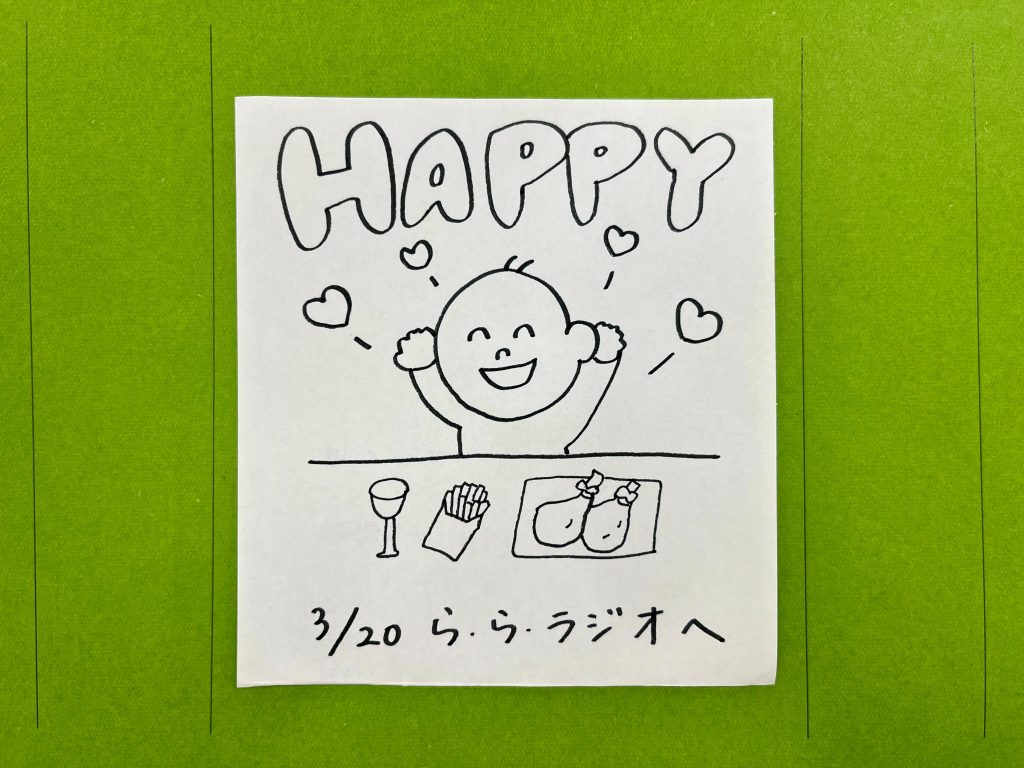 HAPPY
3/20 ら・ら・ラジオへ